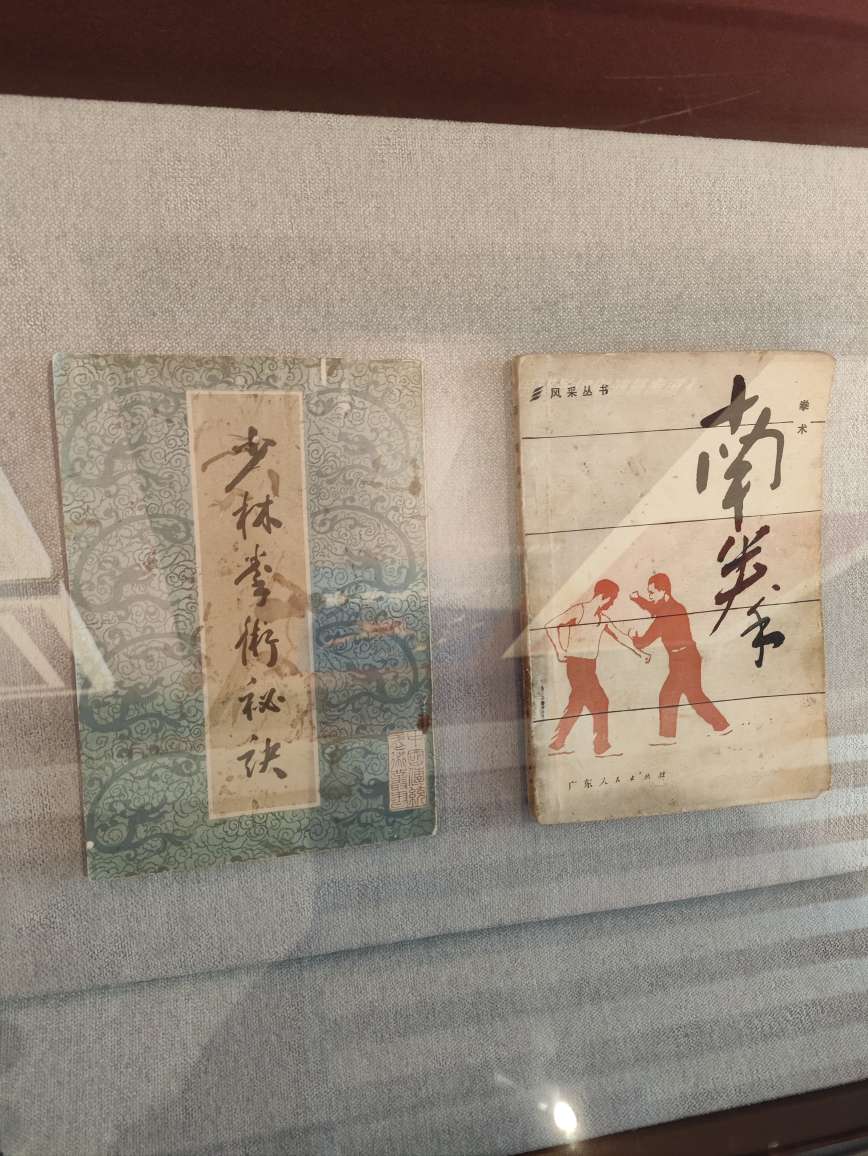 少林拳術秘訣
风采丛书
南拳
拳术
广东人民出版社